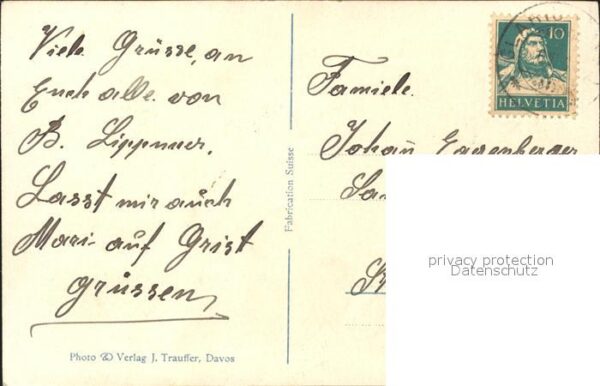 Viele Grüsse, an
Euch alle. von
B. Lippuner,
Lasst mir auch
Mari auf Grist
grüssen,
Photo & Verlag J. Trauffer, Davos
Fabrication Suisse
10
HELVETIA
Famiele.
Johan Eggenberger
privacy protection
Datenschutz